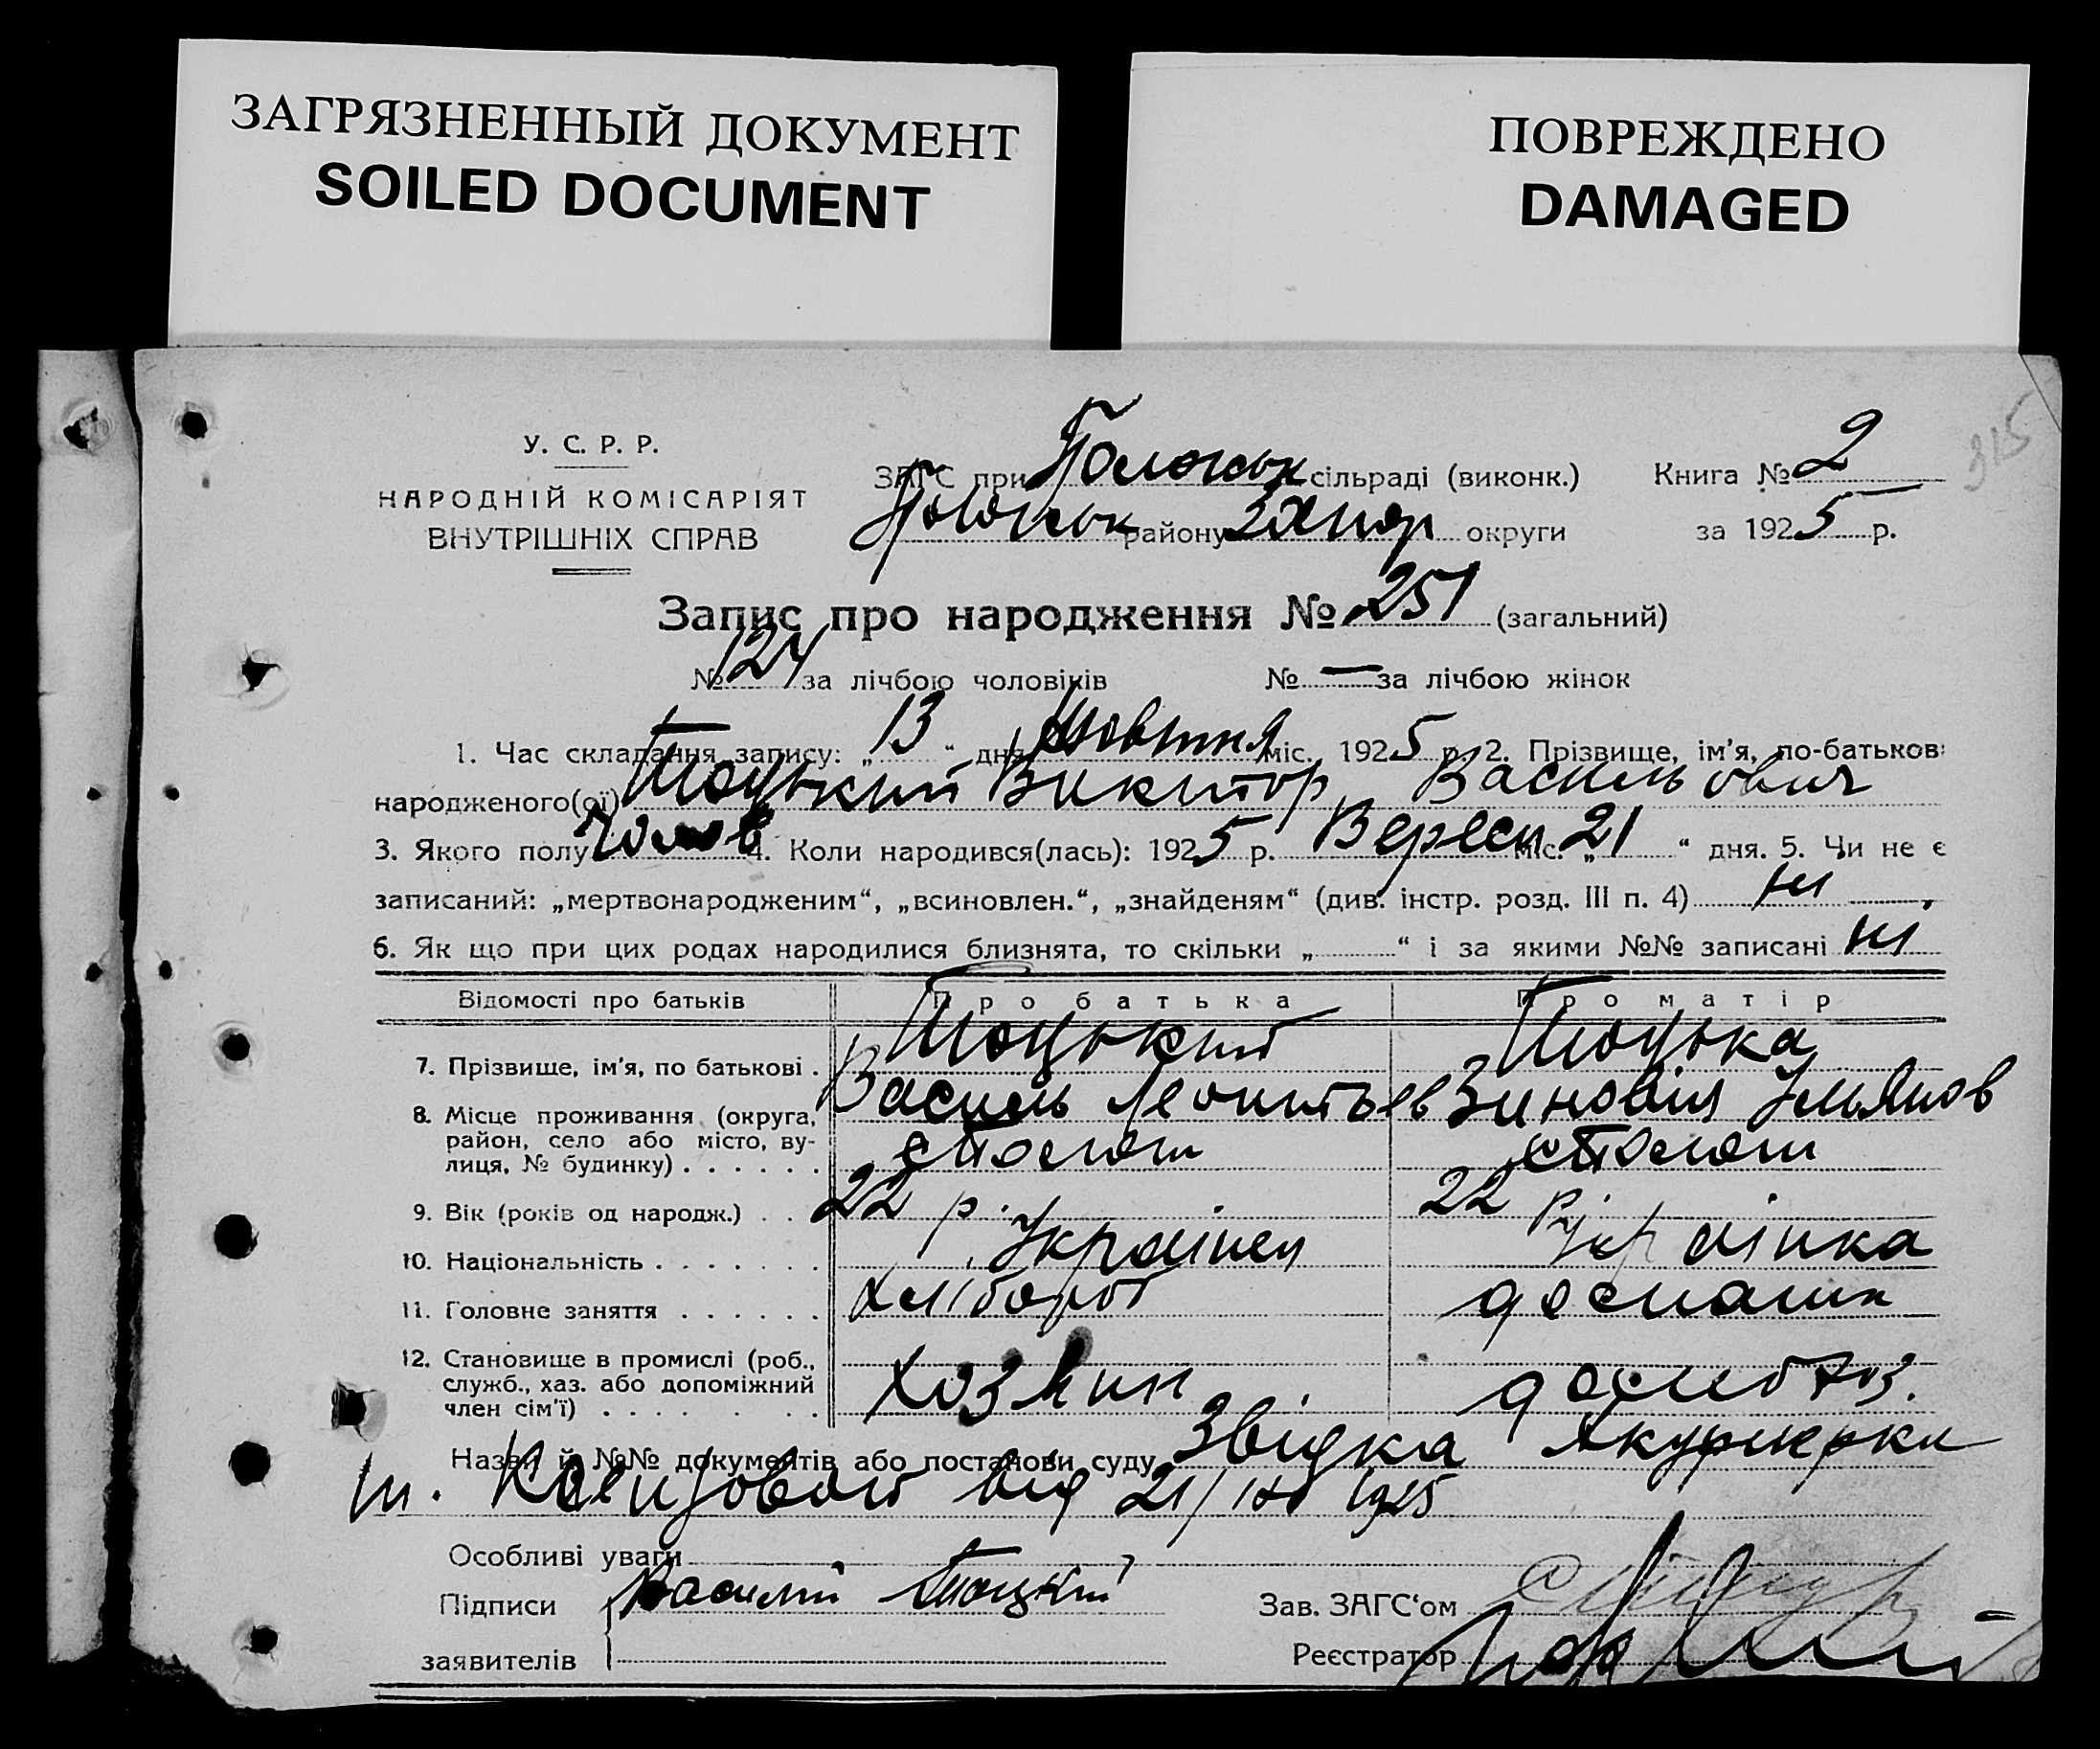 ЗАГРЯЗНЕННЫЙ ДОКУМЕНТ
SOILED DOCUMENT
ПОВРЕЖДЕНО
DAMAGED
315
У. С. Р. Р.
НАРОДНІЙ КОМІСАРІЯТ
ВНУТРІШНІХ СПРАВ
ЗАГС при Положськ сільраді (виконк.)
Положськ району Запор округи
Книга № 2
за 1925 р.
Запис про народження № 251 (загальний)
№ 124 за лічбою чоловіків № — за лічбою жінок
1. Час складання запису: „ 13 “ дня Жовтня міс. 1925 р. 2. Прізвище, ім'я, по-батькові
народженого(ої) Тоцький Виктор Васильович
3. Якого полу Чолов 4. Коли народився(лась): 1925 р. Вересн міс. „ 21 “ дня. 5. Чи не є
записаний: „мертвонародженим“, „всиновлен.“, „знайденям“ (див. інстр. розд. III п. 4) ні
6. Як що при цих родах народилися близнята, то скільки „ “ і за якими №№ записані ні
Відомості про батьків Про батька Про матір
7. Прізвище, ім'я, по батькові . Тоцький Василь Леонтьев Тоцька Зиновія Ульянов
8. Місце проживання (округа,
район, село або місто, ву-
лиця, № будинку) . . . . . .
9. Вік (років од народж.) . . 22 р. 22 р
10. Національність . . . . . . . Українец Українка
11. Головне заняття . . . . . . Хлібороб
12. Становище в промислі (роб.,
служб., хаз. або допоміжний
член сім'ї) . . . . . . . Хозяин
Назви й №№ документів або постанови суду Звідка Якушерки
від 21/ 1925
Особливі уваги
Підписи Василий Тоцкий
заявителів
Зав. ЗАГС'ом
Реєстратор